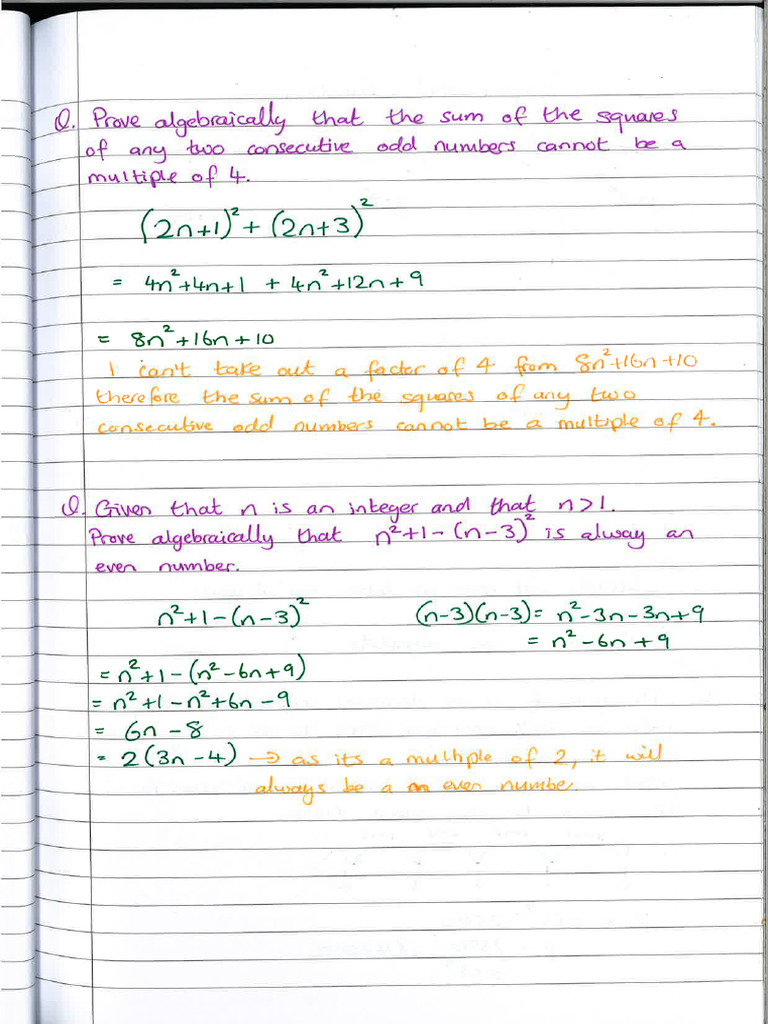 Q. Prove algebraically that the sum of the squares
of any two consecutive odd numbers cannot be a
multiple of 4.
(2n+1)² + (2n+3)²
= 4n²+4n+1 + 4n²+12n+9
= 8n²+16n+10
I can't take out a factor of 4 from 8n²+16n+10
therefore the sum of the squares of any two
consecutive odd numbers cannot be a multiple of 4.
Q. Given that n is an integer and that n>1.
Prove algebraically that n²+1-(n-3)² is alway an
even number.
n²+1-(n-3)² (n-3)(n-3) = n²-3n-3n+9
= n²-6n+9
= n²+1-(n²-6n+9)
= n²+1-n²+6n-9
= 6n-8
= 2(3n-4) → as its a multiple of 2, it will
always be a even number.